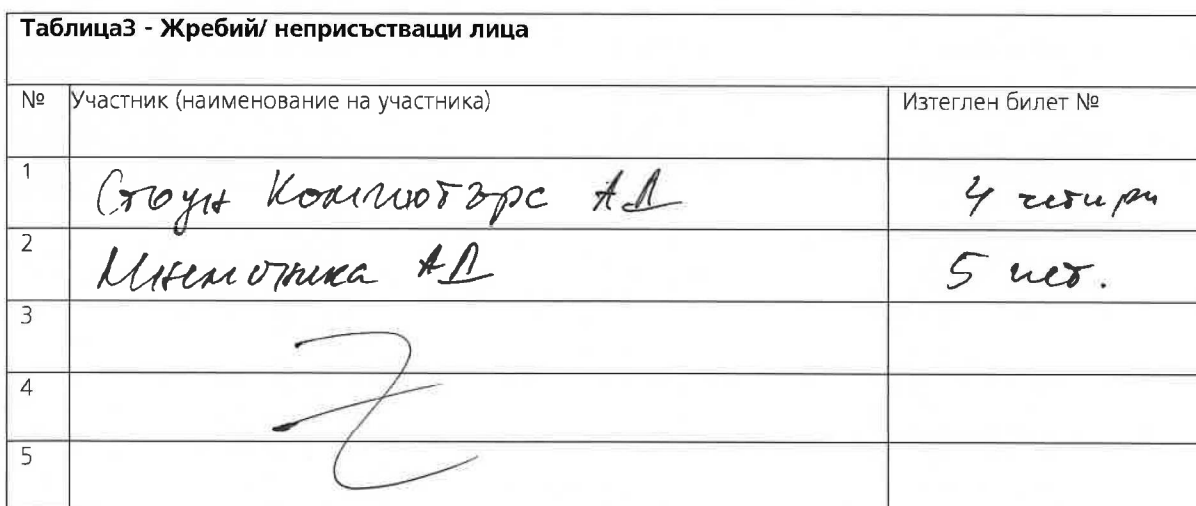 Таблица3 - Жребий/ неприсъстващи лица
№ Участник (наименование на участника) Изтеглен билет №
1 Стоун Компютърс АД 4 четири
2 Мнемоника АД 5 пет.
3
4
5